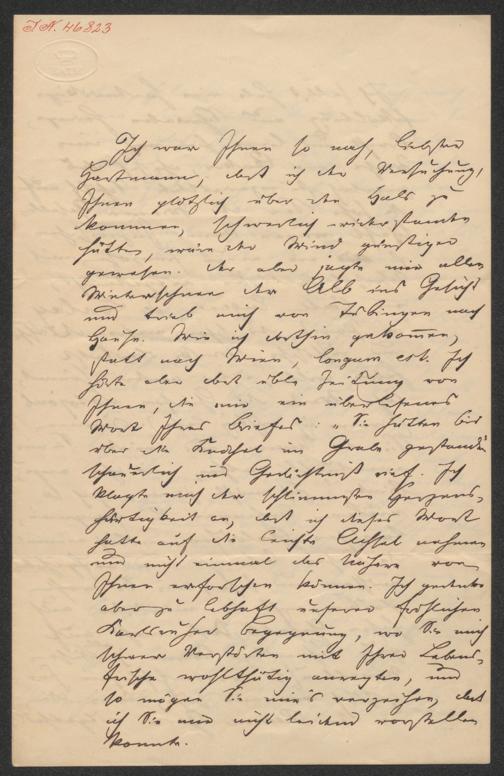 J.N. 46823
Ich war Ihnen so nah, liebster
Hartmann, daß ich der Versuchung,
Ihnen plötzlich über den Hals zu
kommen, schwerlich widerstanden
hätte, wäre der Wind günstiger
gewesen. Der aber jagte mir allen
Winterschnee der Alb ins Gesicht
und trieb mich von Tübingen nach
Hause. Wie ich dorthin gekommen,
statt nach Wien, longum est. Ich
hörte aber dort üble Zeitung von
Ihnen, die mir ein überlesenes
Wort Ihres Briefes: „Sie hätten bis
über die Knöchel im Grabe gestanden"
schauerlich ins Gedächtniß rief. Ich
klagte mich der schlimmsten Herzens-
härtigkeit an, daß ich dieses Wort
hatte auf die leichte Achsel nehmen
und nicht einmal das Nähere von
Ihnen erforschen können. Ich gedenke
aber zu lebhaft unserer fröhlichen
Karlsruher Begegnung, wo Sie mich
schwer Verstörten mit Ihrer Lebens-
frische wohlthätig anregten, und
so mögen Sie mir's verzeihen, daß
ich Sie mir nicht leidend vorstellen
konnte.